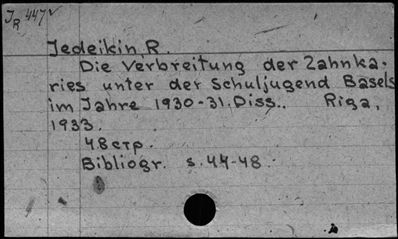 J R 447
Jedeikin, R.
Die Verbreitung der Zahnka-
ries unter der Schuljugend Basels
im Jahre 1930-31. Diss.. Riga,
1933.
48 стр.
Bibliogr. s. 44-48.